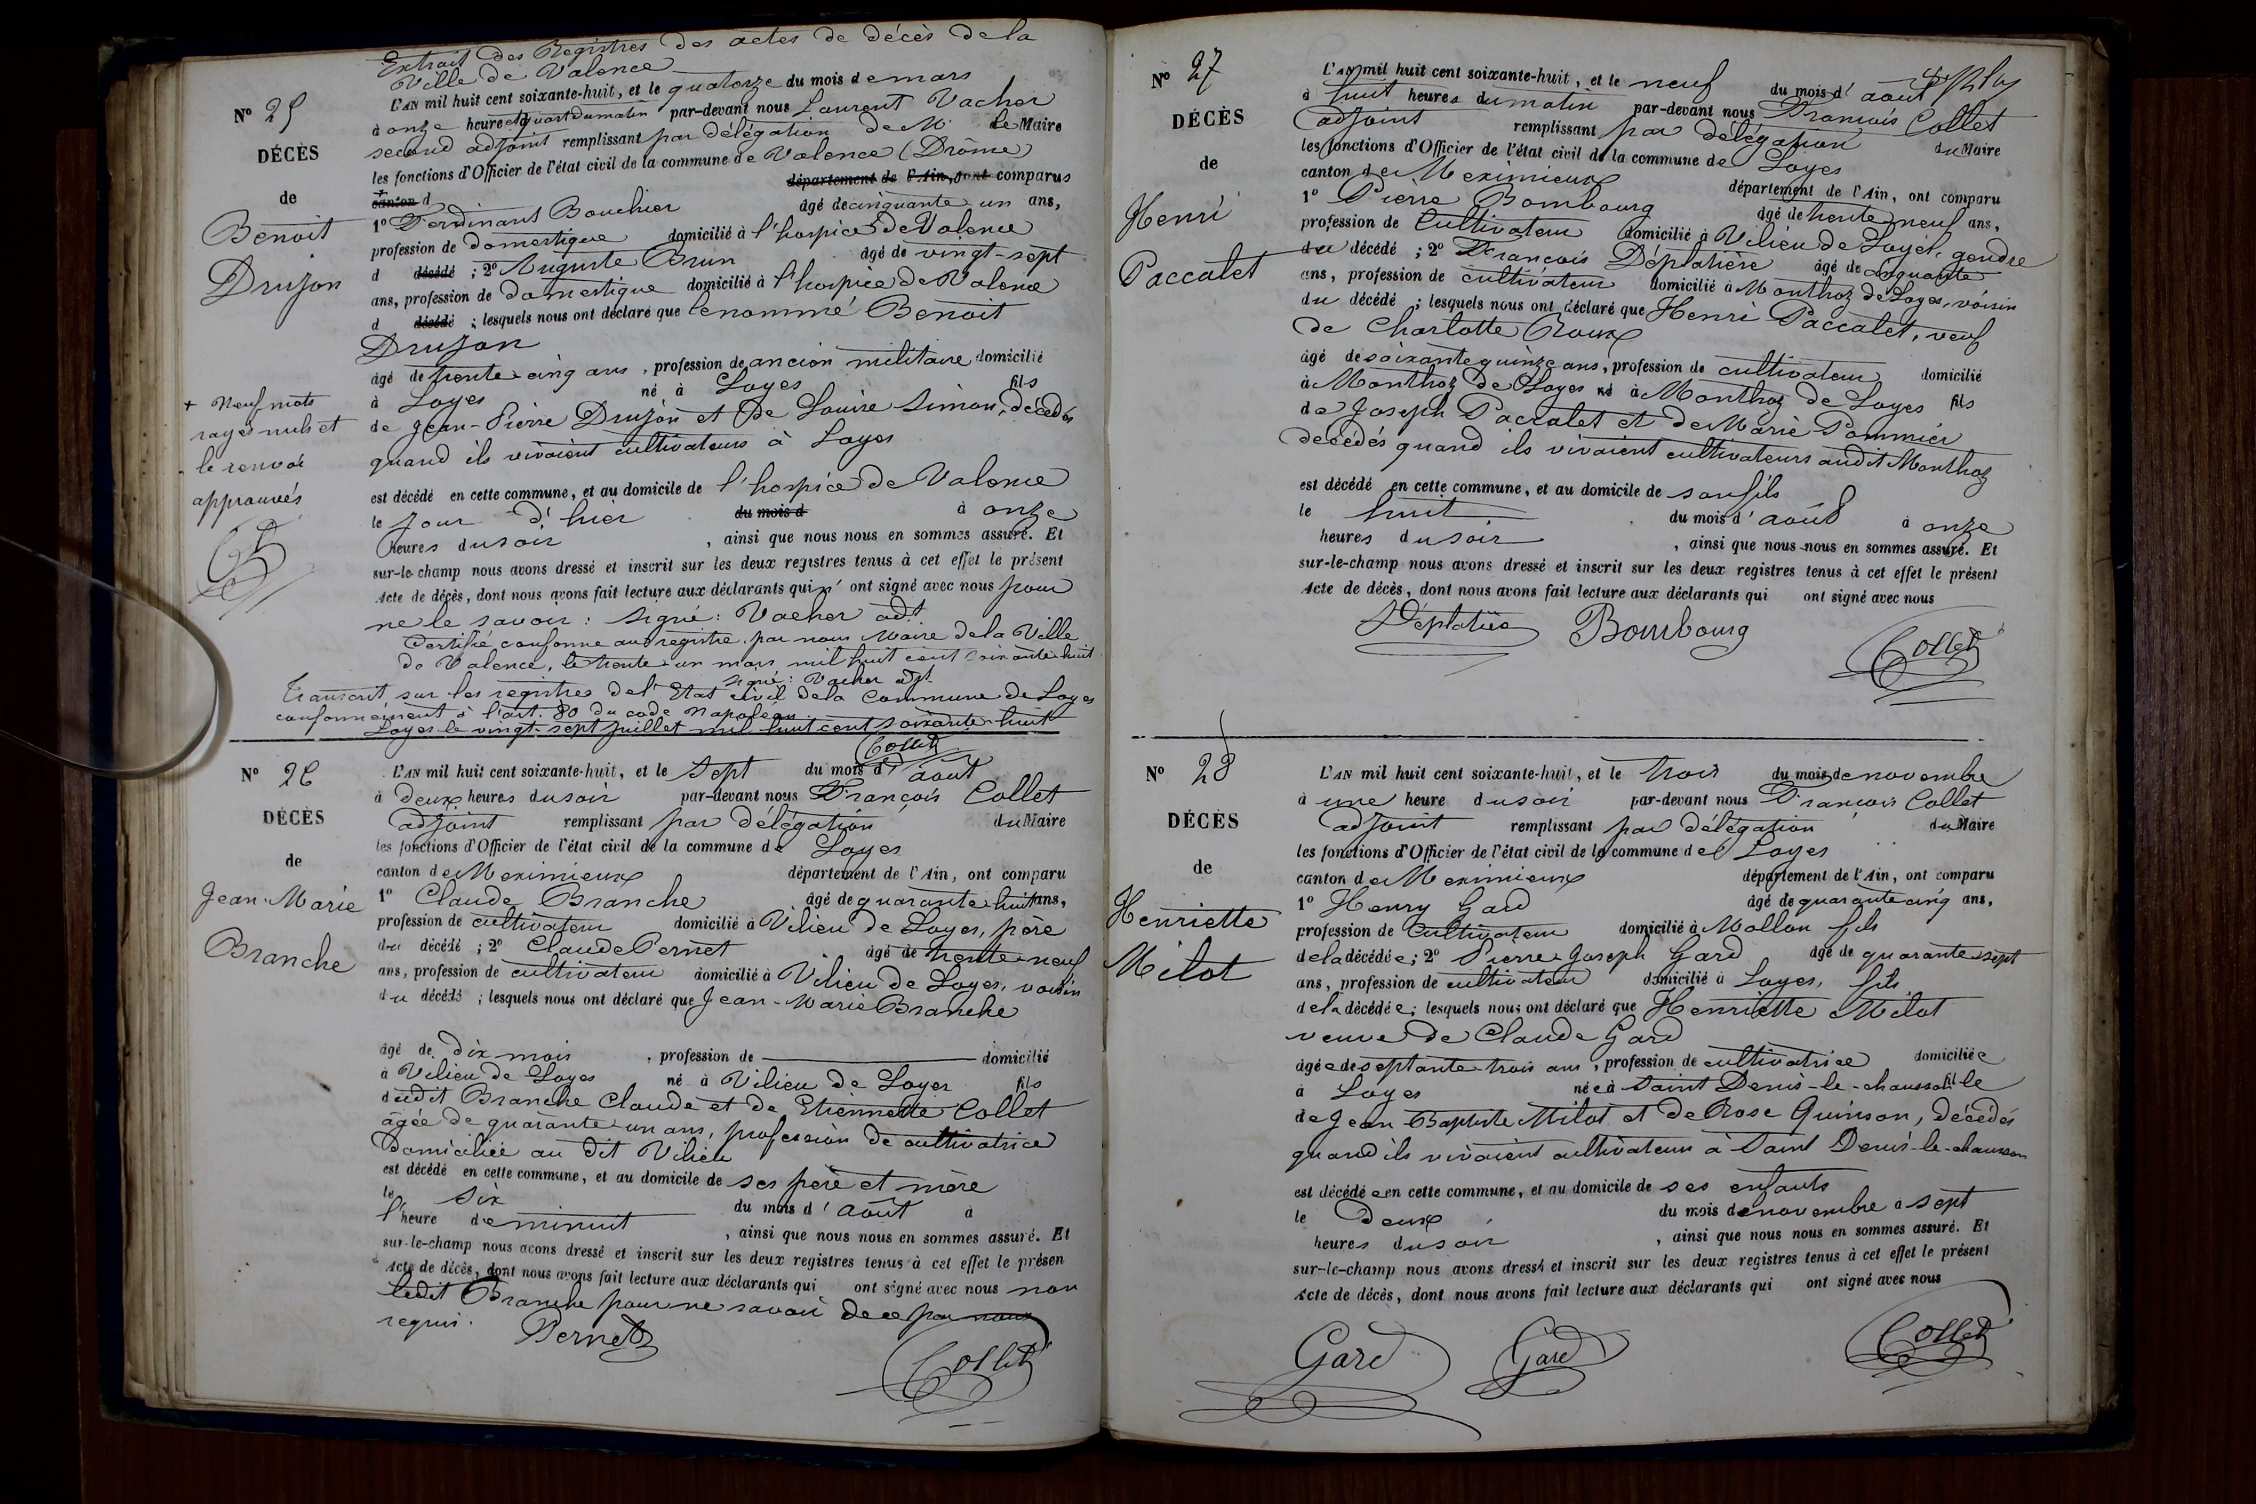 Extrait des Registres des actes de décès de la
Ville de Valence
N° 25
L'AN mil huit cent soixante-huit, et le quatorze du mois de mars
à onze heures et quart du matin par-devant nous Laurent Vacher
DÉCÈS
second adjoint remplissant par délégation de M. le Maire
les fonctions d'Officier de l'état civil de la commune de Valence (Drôme)
de
+ canton d département de l'Ain, sont comparus
Benoit
1° Ferdinant Bouchier âgé de cinquante un ans,
profession de domestique domicilié à l'hospice de Valence
Drujon
d décédé ; 2° Auguste Brun âgé de vingt-sept
ans, profession de domestique domicilié à l'hospice de Valence
d décédé ; lesquels nous ont déclaré que le nommé Benoit
Drujon
âgé de trente cinq ans, profession de ancien militaire domicilié
à Loyes né à Loyes fils
de Jean-Pierre Drujon et de Louise Simon, décédés
quand ils vivaient cultivateurs à Loyes
+ Neuf mots
rayés nuls et
le renvoi
approuvés
est décédé en cette commune, et au domicile de l'hospice de Valence
le jour d'hier du mois d à onze
heures du soir, ainsi que nous nous en sommes assuré. Et
sur-le-champ nous avons dressé et inscrit sur les deux registres tenus à cet effet le présent
Acte de décès, dont nous avons fait lecture aux déclarants qui n' ont signé avec nous pour
ne le savoir : signé : Vacher adt
Certifié conforme au registre par nous Maire de la Ville
de Valence, le trente un mars mil huit cent soixante huit
signé : Vacher adt
Transcrit sur les registres de l'Etat civil de la Commune de Loyes
conformément à l'art. 80 du code Napoléon
Loyes le vingt-sept juillet mil huit cent soixante-huit
Collet
N° 26
L'AN mil huit cent soixante-huit, et le sept du mois d'août
à deux heures du soir par-devant nous François Collet
DÉCÈS
adjoint remplissant par délégation du Maire
les fonctions d'Officier de l'état civil de la commune de Loyes
de
canton de Meximieux département de l'Ain, ont comparu
Jean-Marie
1° Claude Branche âgé de quarante huit ans,
profession de cultivateur domicilié à Vilieu de Loyes, père
Branche
du décédé ; 2° Claude Pernet âgé de trente-neuf
ans, profession de cultivateur domicilié à Vilieu de Loyes, voisin
du décédé ; lesquels nous ont déclaré que Jean-Marie Branche
âgé de dix mois, profession de domicilié
à Vilieu de Loyes né à Vilieu de Loyes fils
dudit Branche Claude et de Etiennette Collet
âgée de quarante un ans, profession de cultivatrice
domiciliée au dit Vilieu
est décédé en cette commune, et au domicile de ses père et mère
le six du mois d'août à
l'heure de minuit, ainsi que nous nous en sommes assuré. Et
sur-le-champ nous avons dressé et inscrit sur les deux registres tenus à cet effet le présen
Acte de décès, dont nous avons fait lecture aux déclarants qui ont signé avec nous non
ledit Branche pour ne savoir de ce par nous
requis.
Pernet
Collet
N° 27
L'AN mil huit cent soixante-huit, et le neuf du mois d'août
à huit heures du matin par-devant nous François Collet
DÉCÈS
adjoint remplissant par délégation du Maire
les fonctions d'Officier de l'état civil de la commune de Loyes
de
canton de Meximieux département de l'Ain, ont comparu
Henri
1° Pierre Bombourg âgé de trente neuf ans,
profession de cultivateur domicilié à Vilieu de Loyes, gendre
Paccalet
du décédé ; 2° François Déplatière âgé de cinquante
ans, profession de cultivateur domicilié à Monthoz de Loyes, voisin
du décédé ; lesquels nous ont déclaré que Henri Paccalet, veuf
de Charlotte Roux
âgé de soixante quinze ans, profession de cultivateur domicilié
à Monthoz de Loyes né à Monthoz de Loyes fils
de Joseph Paccalet et de Marie Pommier
décédés quand ils vivaient cultivateurs audit Monthoz
est décédé en cette commune, et au domicile de son fils
le huit du mois d'août à onze
heures du soir, ainsi que nous nous en sommes assuré. Et
sur-le-champ nous avons dressé et inscrit sur les deux registres tenus à cet effet le présent
Acte de décès, dont nous avons fait lecture aux déclarants qui ont signé avec nous
Bombourg
Collet
N° 28
L'AN mil huit cent soixante-huit, et le trois du mois de novembre
à une heure du soir par-devant nous François Collet
DÉCÈS
adjoint remplissant par délégation du Maire
les fonctions d'Officier de l'état civil de la commune de Loyes
de
canton de Meximieux département de l'Ain, ont comparu
Henriette
1° Henry Gard âgé de quarante cinq ans,
profession de cultivateur domicilié à Mollon fils
Milot
de la décédée ; 2° Pierre Joseph Gard âgé de quarante sept
ans, profession de cultivateur domicilié à Loyes, fils
de la décédée ; lesquels nous ont déclaré que Henriette Milot
veuve de Claude Gard
âgée de septante trois ans, profession de cultivatrice domiciliée
à Loyes née à Saint Denis-le-chausson fille
de Jean Baptiste Milot et de Rose Quinson, décédés
quand ils vivaient cultivateurs à Saint Denis-le-chausson
est décédée en cette commune, et au domicile de ses enfants
le deux du mois de novembre à sept
heures du soir, ainsi que nous nous en sommes assuré. Et
sur-le-champ nous avons dressé et inscrit sur les deux registres tenus à cet effet le présent
Acte de décès, dont nous avons fait lecture aux déclarants qui ont signé avec nous
Gard
Gard
Collet